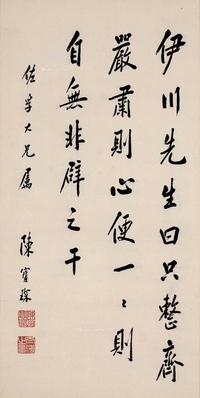 伊川先生曰只整齊
嚴肅則心便一〻則
自無非辟之干
佐宇大兄屬
陳寶琛